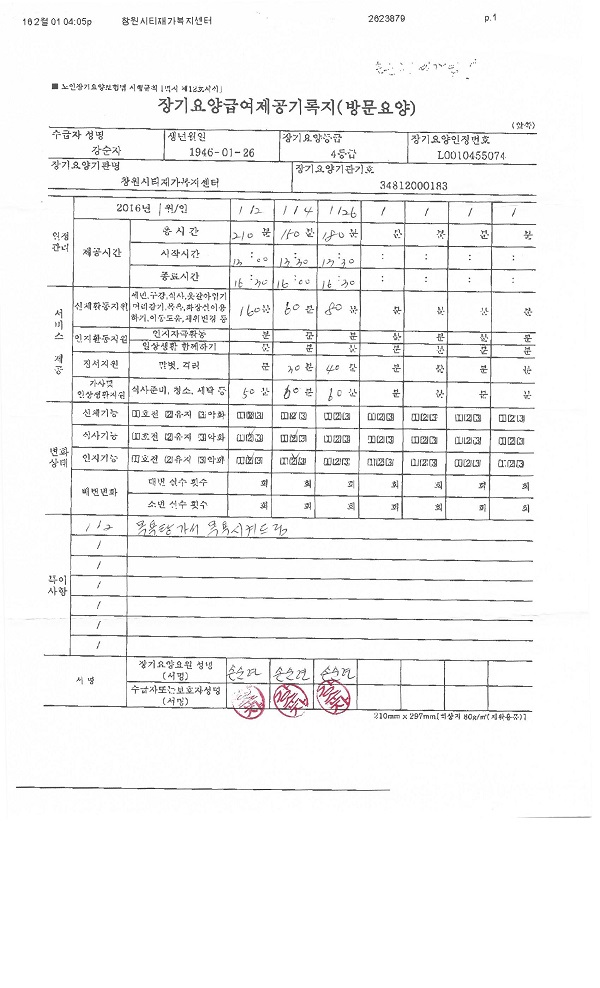 16 2월 01 04:05p 창원시티재가복지센터 2623879 p.1
■ 노인장기요양보험법 시행규칙 [별지 제12호서식]
장기요양급여제공기록지(방문요양)
(앞쪽)
수급자 성명 생년월일 장기요양등급 장기요양인정번호
강순자 1946-01-26 4등급 L0010455074
장기요양기관명 장기요양기관기호
창원시티재가복지센터 34812000183
2016년 1 월/일 1/2 1/4 1/26 / / / /
총 시 간 210 분 150 분 180 분 분 분 분 분
제공시간 시작시간 13:00 13:30 13:30 : : : :
종료시간 16:30 16:00 16:30 : : : :
서비스 제공
신체활동지원 세면,구강,식사,옷갈아입기 머리감기,목욕,화장실이용 하기,이동도움,체위변경 등 160 분 60 분 80 분 분 분 분 분
인지활동지원 인지자극활동 분 분 분 분 분 분 분
일상생활 함께하기 분 분 분 분 분 분 분
정서지원 말벗, 격려 분 30 분 40 분 분 분 분 분
가사및 일상생활지원 식사준비, 청소, 세탁 등 50 분 60 분 60 분 분 분 분 분
변화 상태
신체기능 1호전 2유지 3악화 123 123 123 123 123 123 123
식사기능 1호전 2유지 3악화 123 123 123 123 123 123 123
인지기능 1호전 2유지 3악화 123 123 123 123 123 123 123
배변변화 대변 실수 횟수 회 회 회 회 회 회 회
소변 실수 횟수 회 회 회 회 회 회 회
특이 사항
1/2 목욕탕가서 목욕시켜드림
/
/
/
/
/
/
서 명 장기요양요원 성명 (서명) 손순연 손순연 손순연
수급자또는보호자성명 (서명)
210mm x 297mm[백상지 80g/㎡(재활용품)]